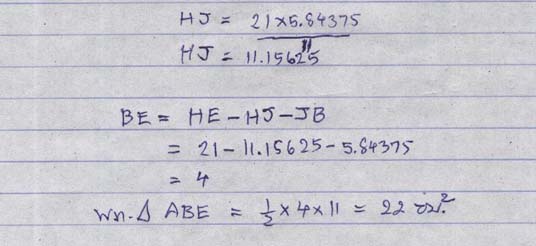 HJ = 21×5.84375
11
HJ = 11.15625
BE = HE - HJ - JB
= 21 - 11.15625 - 5.84375
= 4
พท. Δ ABE = 1/2 × 4 × 11 = 22 ตร.²